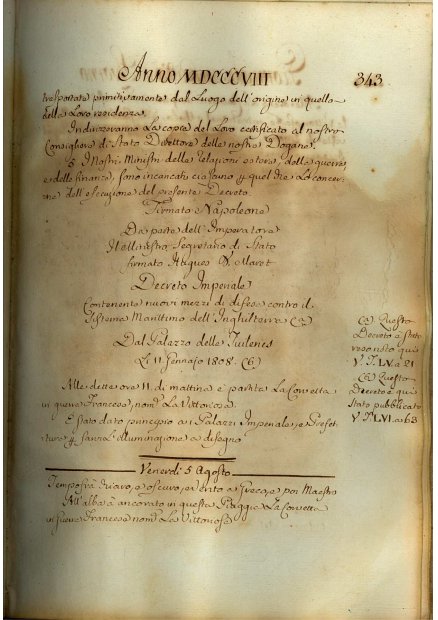 Anno MDCCCVIII
343
trasportate primitivamente dal Luogo dell'origine in quello
della Loro residenza.
Indirizzeranno La copia del Loro certificato al nostro
Consigliere di Stato Direttore delle nostre Dogane.
I Nostri Ministri delle relazioni estere, della guerra
e delle finanze, sono incaricati ciascuno p quel che Lo concer-
ne dell'esecuzione del presente Decreto.
Firmato Napoleone
Da parte dell'Imperatore
Il Ministro Segretario di Stato
firmato Maret
Decreto Imperiale
Contenente nuovi mezzi di difesa contro il
Sistema Marittimo dell'Inghilterra (a)
Dal Palazzo delle Tuileries
Li 11 Gennajo 1808. (b)
(a) Questo
Decreto è stato
qui
V. T. LV. a 21
(b) Questo
Decreto è qui
Stato pubblicato
V. T. LVI. a 63
Alle dette ore 11 di mattina è partita La Corvetta
in guerra Francese, nom. La Vittoriosa
È stato dato principio ai Palazzi Imperiale, e Prefet-
tura p l'illuminazione a disegno
Venerdì 5 Agosto
Tempo e oscuro, e vento a Greco, e poi Maestro
All'alba à ancorato in questa Piaggia La Corvetta
in guerra Francese nom. La Vittoriosa